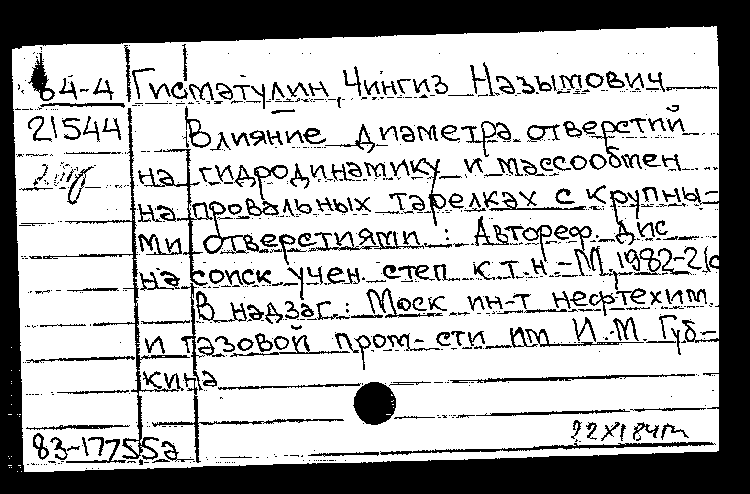 64-4 Гисматулин, Чингиз Назымович
21544 Влияние диаметра отверстий
на гидродинамику и массообмен
на провальных тарелках с крупны-
ми отверстиями: Автореф. дис
на соиск учен. степ к.т.н.-М, 1982-21с
В надзаг.: Моск ин-т нефтехим
и газовой пром-сти им И.М. Губ-
кина
83-17755а